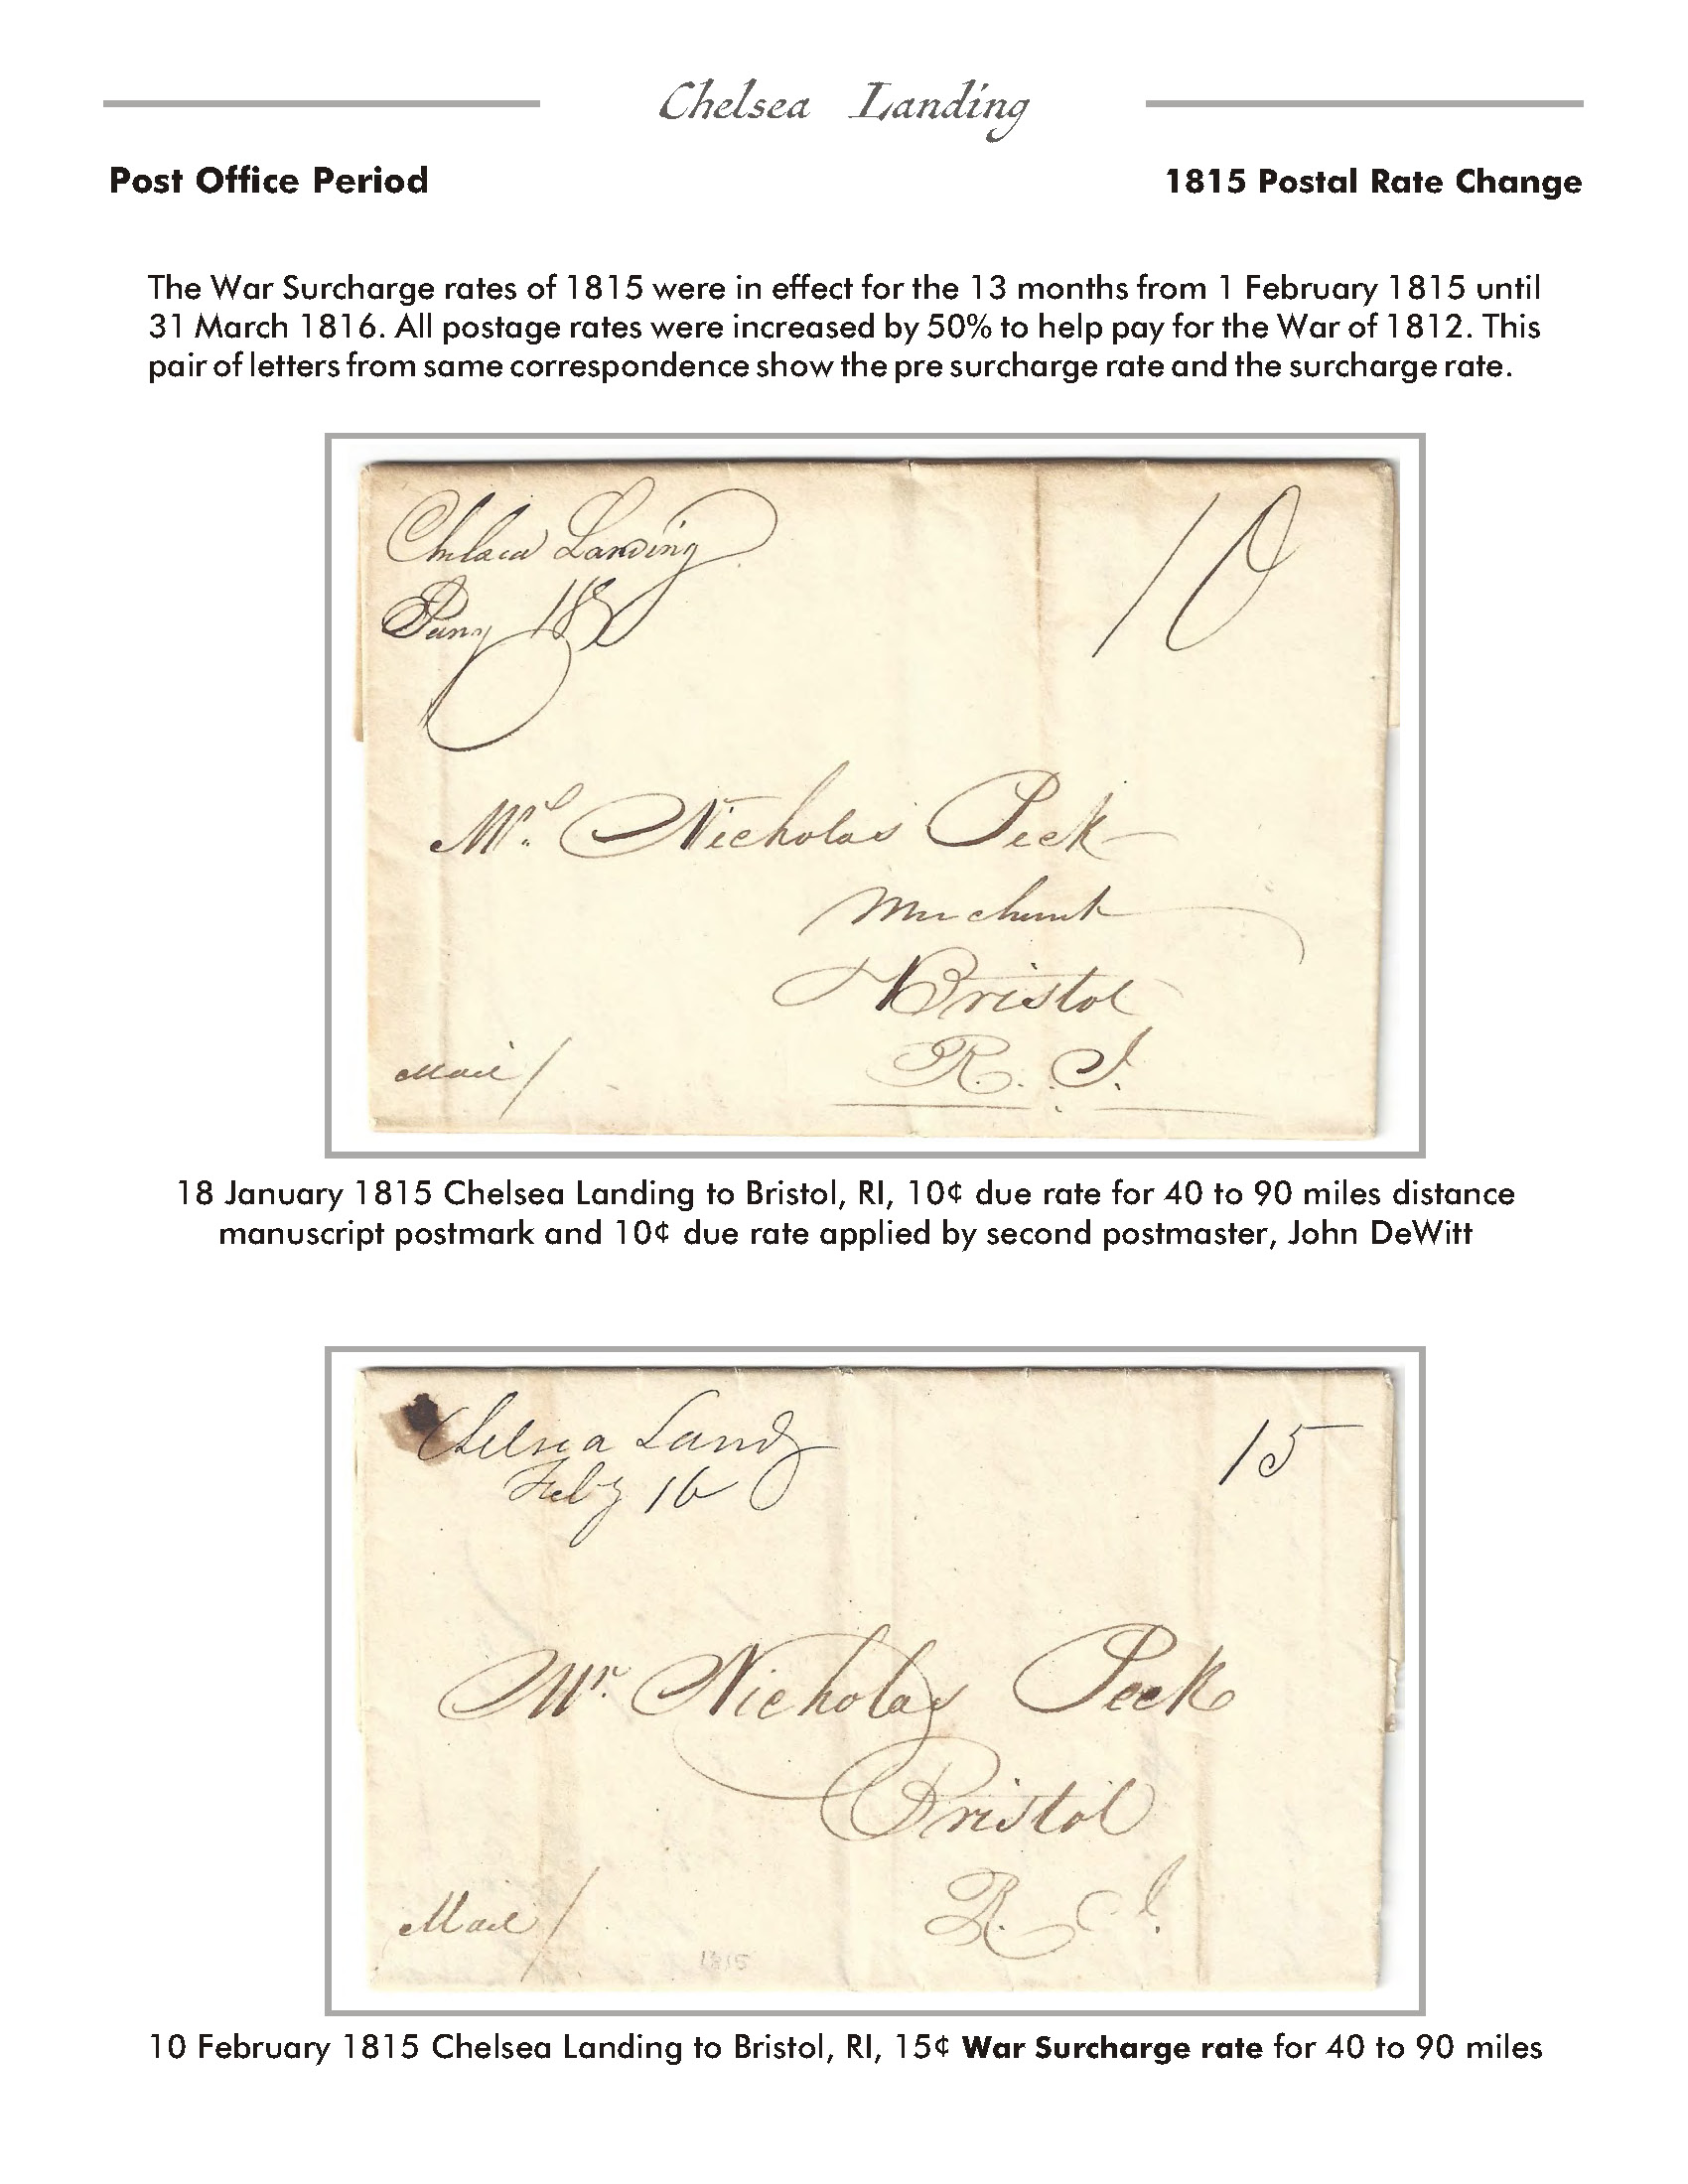 Chelsea Landing
Post Office Period
1815 Postal Rate Change
The War Surcharge rates of 1815 were in effect for the 13 months from 1 February 1815 until
31 March 1816. All postage rates were increased by 50% to help pay for the War of 1812. This
pair of letters from same correspondence show the pre surcharge rate and the surcharge rate.
Chelsea Landing
Jany 18
10
Mr. Nicholas Peek
Merchant
Bristol
R. I.
Mail/
18 January 1815 Chelsea Landing to Bristol, RI, 10¢ due rate for 40 to 90 miles distance
manuscript postmark and 10¢ due rate applied by second postmaster, John DeWitt
Chelsea Landg
Feby 16
15
Mr. Nicholas Peek
Bristol
R. I.
Mail/
1815
10 February 1815 Chelsea Landing to Bristol, RI, 15¢ War Surcharge rate for 40 to 90 miles